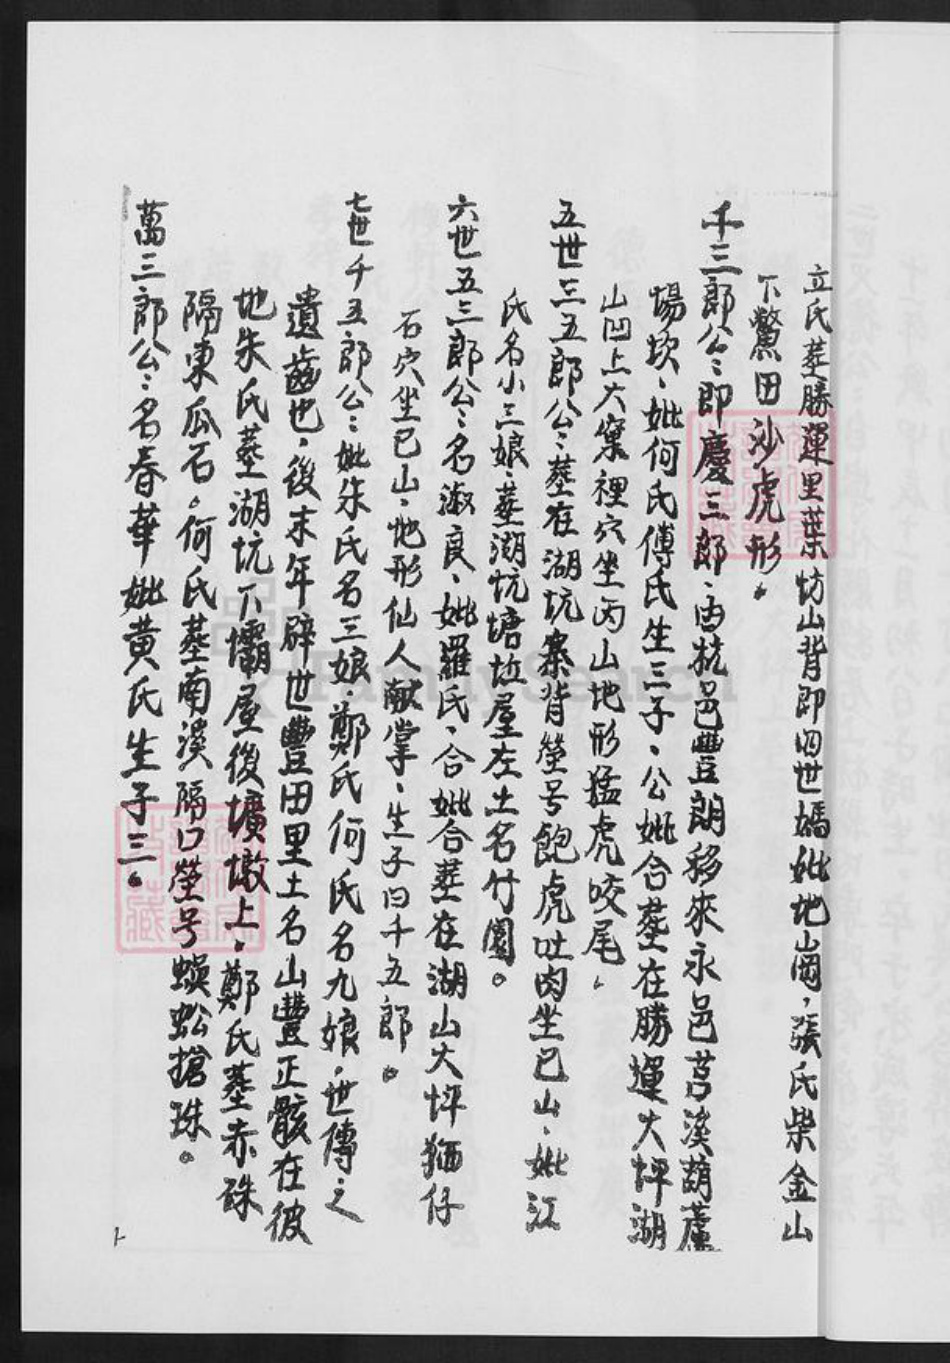 立氏葬勝運里葉坊山背即四世媽妣地崗，張氏柴金山
下鱉田沙虎形。
千三郎公：即慶三郎、由杭邑豐朗移來永邑莒溪葫蘆
場坎、妣何氏傅氏生三子、公妣合葬在勝運大坪湖
山凹上大窠裡穴坐丙山地形猛虎咬尾、
五世三五郎公：葬在湖坑寨背塋号飽虎吐肉坐巳山、妣江
氏名小三娘葬湖坑塘垃屋左土名竹園。
六世五三郎公：名淑良、妣羅氏、合妣合葬在湖山大坪猫仔
石穴坐巳山、地形仙人献掌、生子曰千五郎。
七世千五郎公：妣朱氏名三娘、鄭氏何氏名九娘、世傳之
遺齒也、後末年辟世豐田里土名山豐正骸在彼
地朱氏葬湖坑下壩屋後壙墩上、鄭氏葬赤硃
隔東瓜石。何氏葬南溪隔口塋号蜈蚣搶珠。
萬三郎公：名春華妣黄氏生子三。
FamilySearch